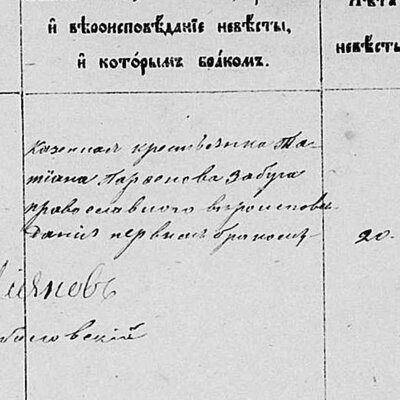 и вѣроисповѣданіе невѣсты,
и которымъ бракомъ.
Лѣта
невѣсты
казенная крестьянка Та-
тіана Парѳенова Забуга
православнаго вѣроисповѣ-
данія первымъ бракомъ
20.